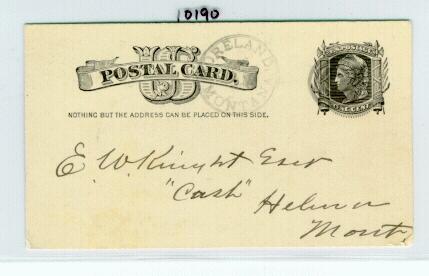 10190
US
POSTAL CARD.
NOTHING BUT THE ADDRESS CAN BE PLACED ON THIS SIDE.
MORELAND
MONTANA
U.S. POSTAGE
ONE CENT
E. W. Knight Esqr
"Cash" Helena
Mont.